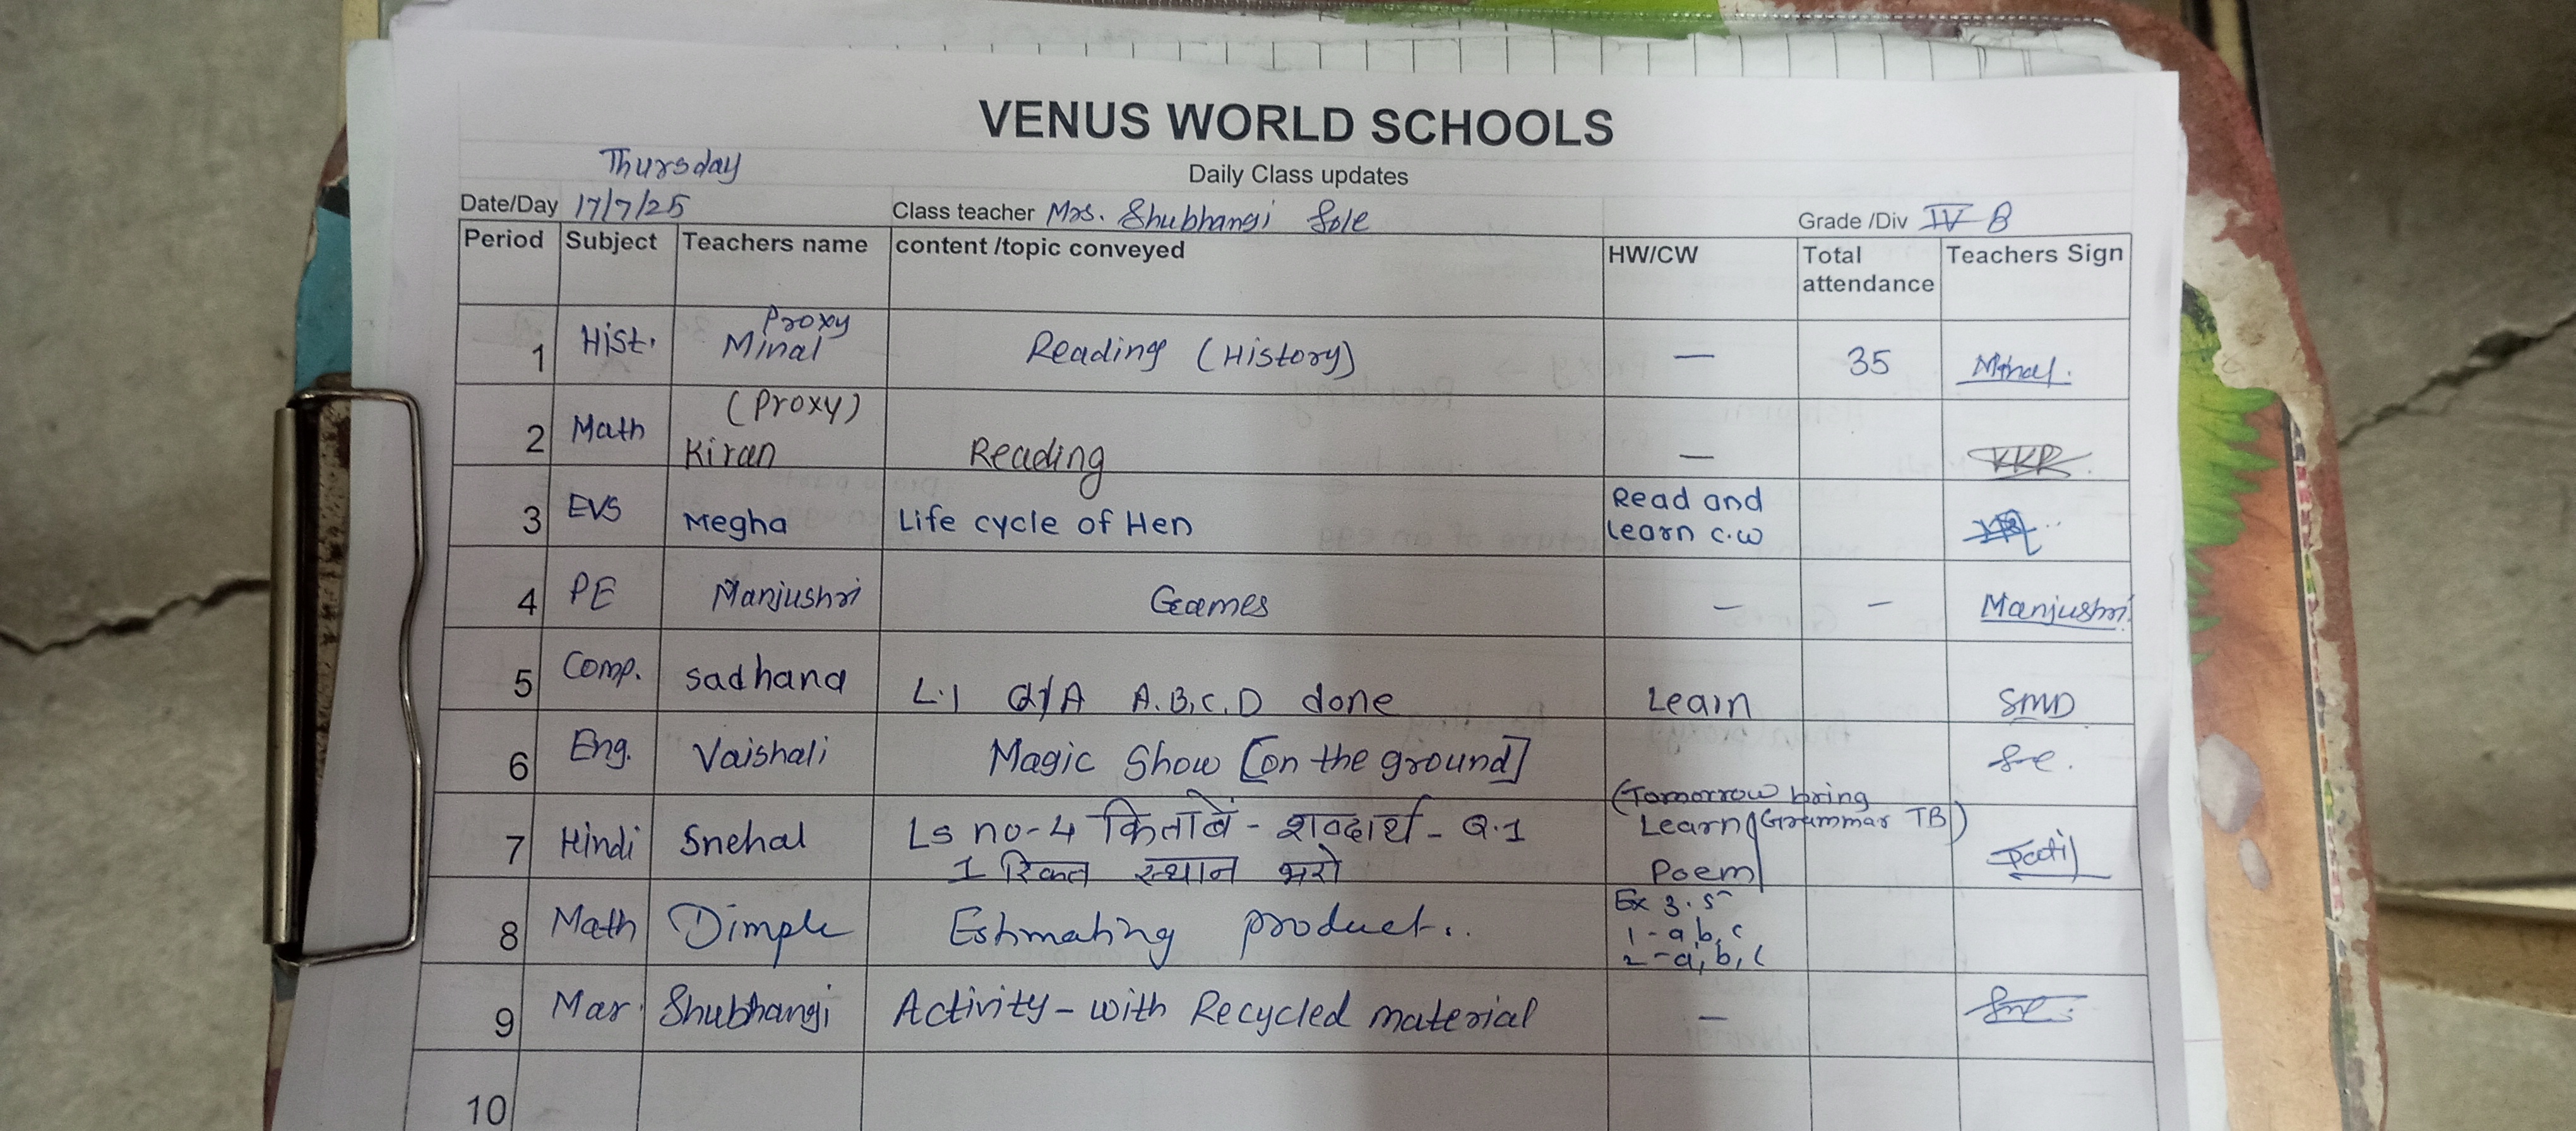 VENUS WORLD SCHOOLS
Daily Class updates
Thursday
Date/Day 17/7/25 Class teacher Mrs. Shubhangi Sole Grade /Div IV B
Period Subject Teachers name content /topic conveyed HW/CW Total attendance Teachers Sign
1 Hist. Proxy Minal Reading (History) — 35 Minal.
2 Math (Proxy) Kiran Reading —
3 EVS Megha Life cycle of Hen Read and learn c.w
4 PE Manjushri Games — — Manjushri
5 Comp. Sadhana L.1 Q/A A.B,C,D done Learn SMD
6 Eng. Vaishali Magic Show [on the ground]
(Tomorrow bring Grammar TB)
7 Hindi Snehal Ls no-4 किताबें - शब्दार्थ - Q.1 Learn Poem Patil
1 रिक्त स्थान भरो
8 Math Dimple Estimating product.. Ex 3.5
1 - a, b, c
2 - a, b, c
9 Mar. Shubhangi Activity - with Recycled material —
10